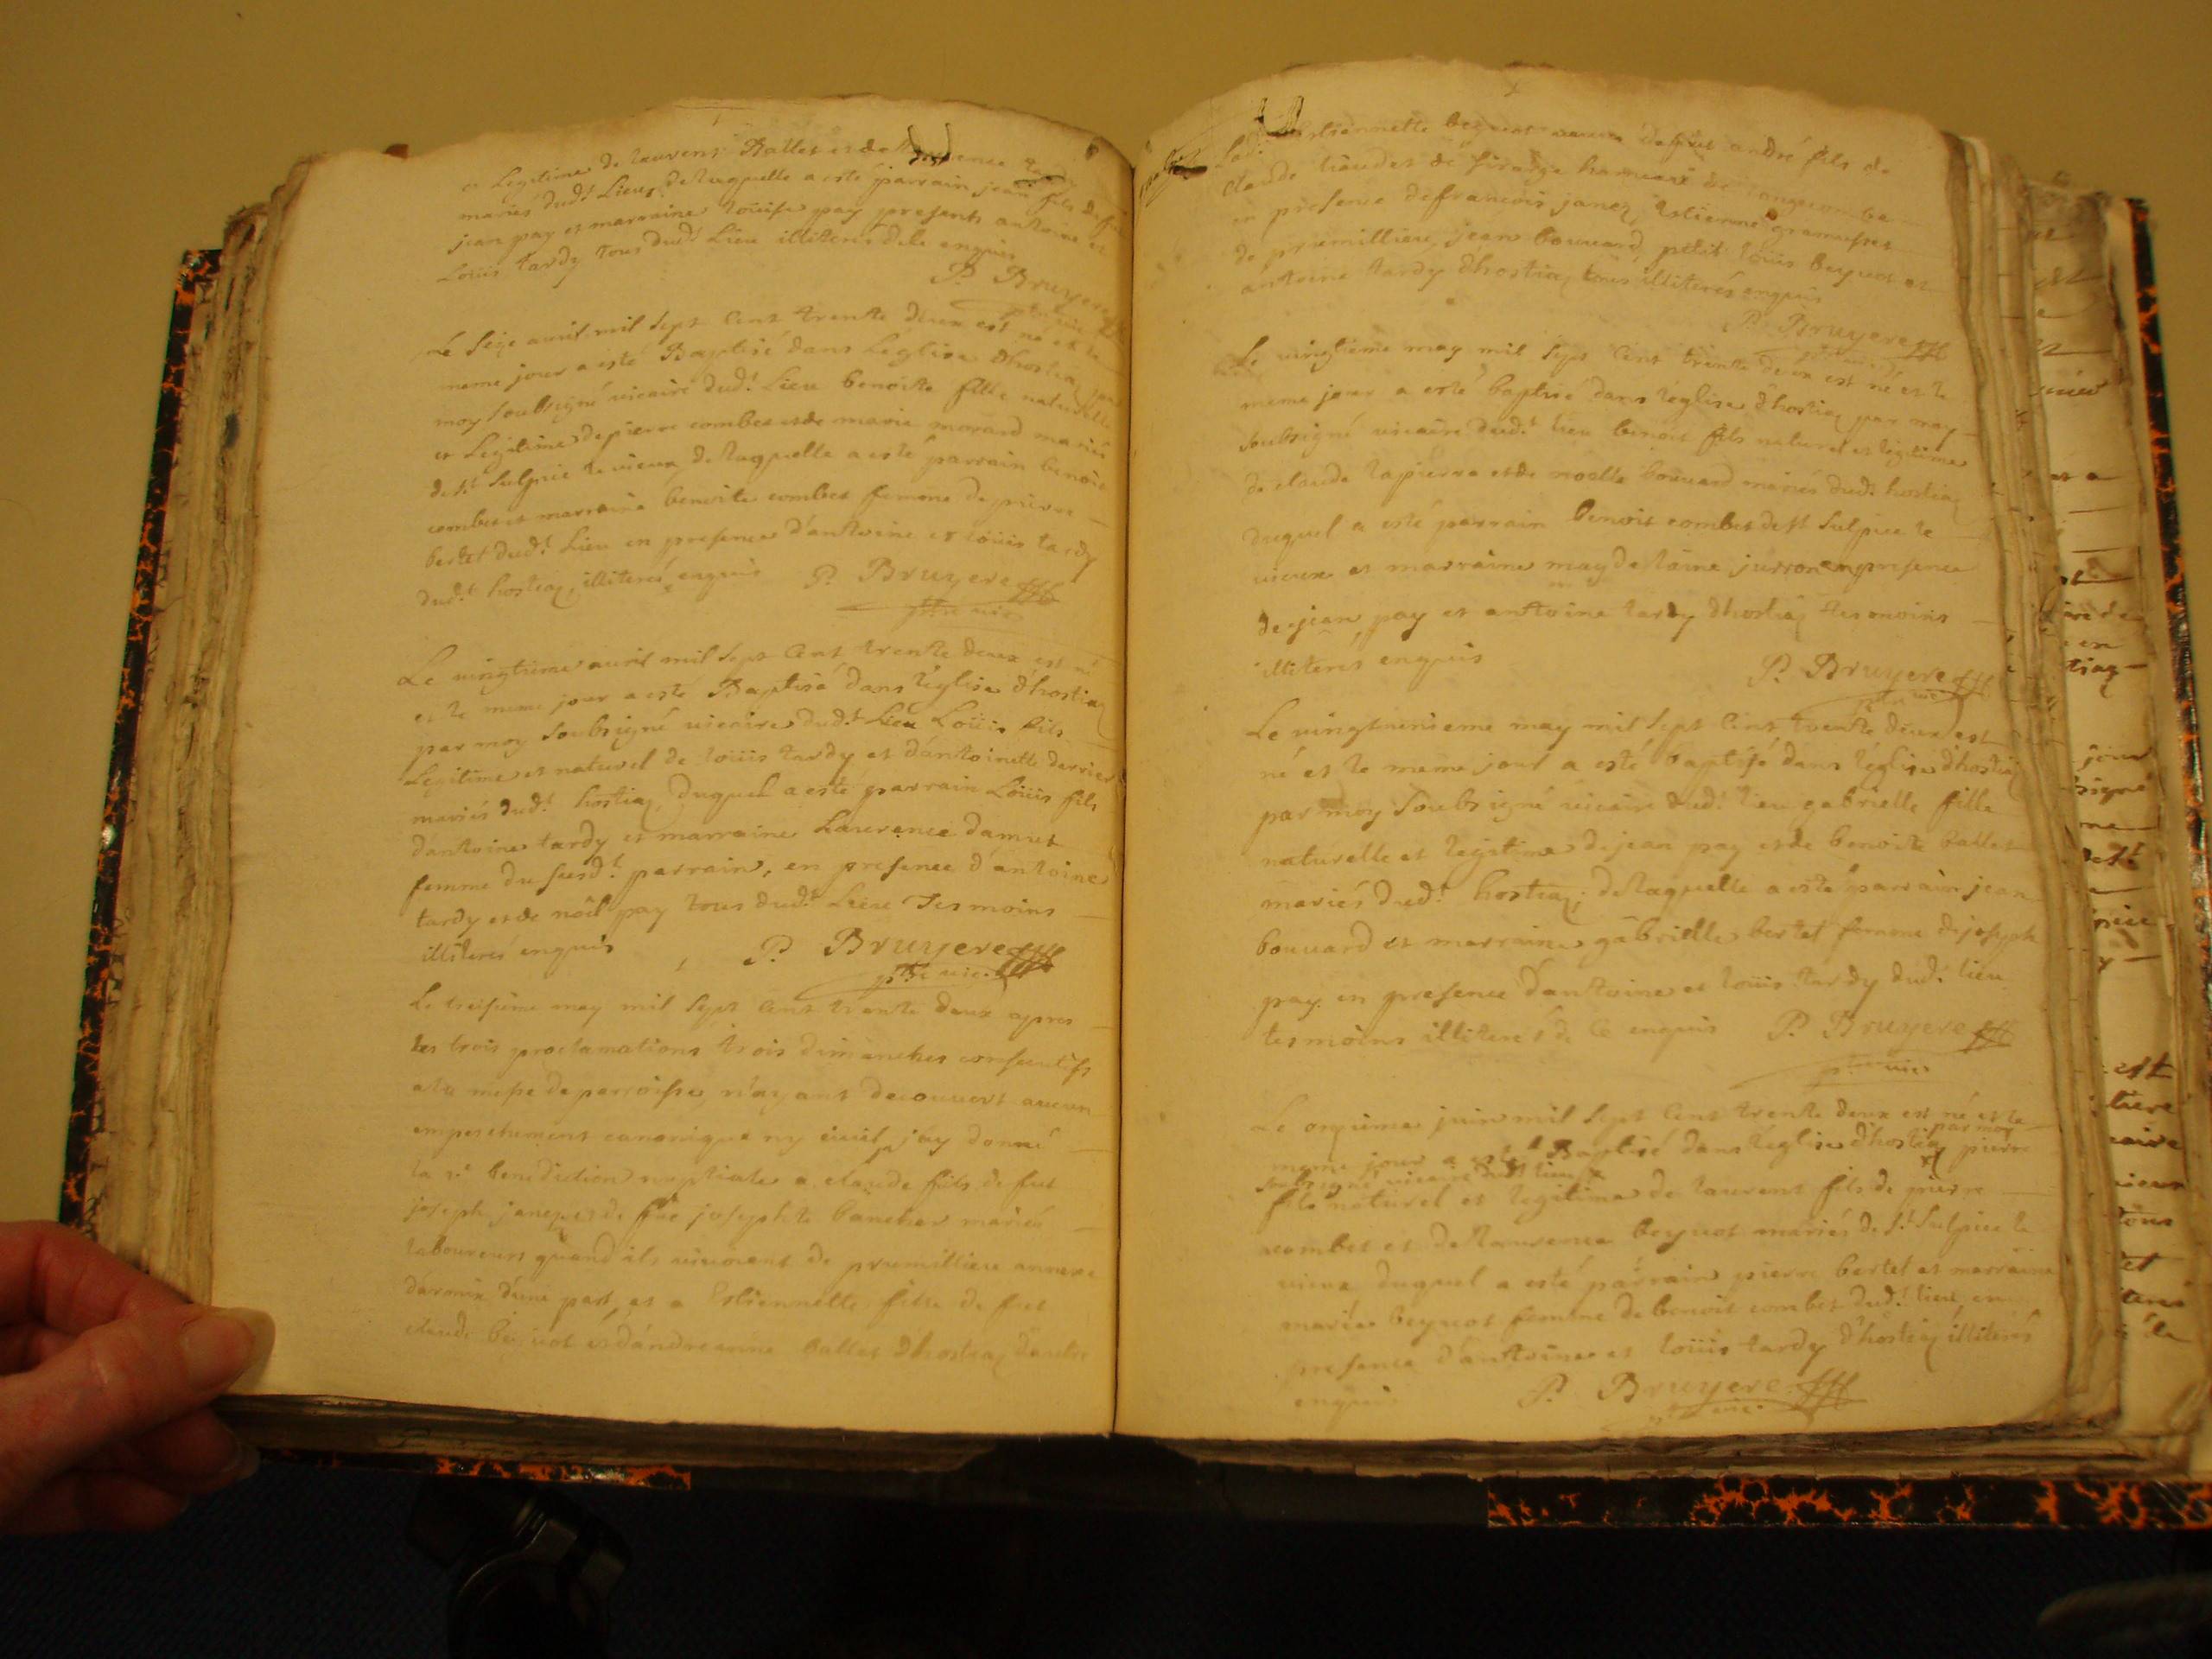 et Legitime de laurens Ballet et de laurence tardy
mariés dud.t Lieu, de laquelle a esté parrain jean fils de feu
jean pay et marraine loüise pay presents antoine et
Loüis tardy tous dud.t Lieu illiterés de le enquis
P. Bruyere
ptre vic.
Le seize avril mil sept cent trente deux est né et le
meme jour a esté Baptisé dans Leglise dhostiaz par
moy soubsigné vicaire dud.t Lieu benoite fille naturelle
et Legitime de pierre combet et de marie morand mariés
de s.t sulpice le vieux, de laquelle a esté parrain benoit
combet et marraine benoite combet femme de pierre
bertet dud.t Lieu en presence d'antoine et loüis tardy
dud.t hostiaz, illiterés enquis P. Bruyere
ptre vic.
Le vingtieme avril mil sept cent trente deux est né
et le meme jour a esté Baptisé dans l'église d'hostiaz
par moy soubsigné vicaire dud.t Lieu Loüis fils
Legitime et naturel de loüis tardy et d'antoinette derrier
mariés dud.t hostiaz, duquel a esté parrain Loüis fils
d'antoine tardy et marraine Laurence damet
femme du susd.t parrain, en presence d'antoine
tardy et de noël pay tous dud.t Lieu Tesmoins
illiterés enquis P. Bruyere
ptre vic.
Le treisième may mil sept cent trente deux apres
les trois proclamations trois dimanches consecutifs
a la messe de parroisse, n'ayant decouvert aucun
empeschement canonique ny civil jay donné
la s.t benediction nuptiale a claude fils de feu
joseph janez et de feüe josephte bancher mariés
laboureurs quand ils vivoient de premillieu annexe
d'armix d'une part, et a Estiennette fille de feu
claude beyvot et d'andreanne ballet dhostiaz d'autre
Lad. Estiennette beyvot veuve depuis andré fils de
claude liaudet de hameau de longecombe
en presence de francois janez, Estienne gramusset
de premillieu, jean bouvard, petit loüis beyvot et
antoine tardy dhostiaz tous illiterés enquis
P. Bruyere
ptre vic.
Le vingtieme may mil sept cent trente deux est né et le
meme jour a esté baptisé dans l'église d'hostiaz par moy
soubsigné vicaire dud.t lieu benoit fils naturel et legitime
de claude lapierre et de noelle bouvard mariés dud.t hostiaz
duquel a esté parrain benoit combet de s.t sulpice le
vieux et marraine magdelaine jurron en presence
de jean pay et antoine tardy dhostiaz tesmoins
illiterés enquis P. Bruyere
ptre vic.
Le vingtneuvieme may mil sept cent trente deux est
né et le meme jour a esté baptisé dans l'église d'hostiaz
par moy soubsigné vicaire dud.t lieu gabrielle fille
naturelle et legitime de jean pay et de benoite ballet
mariés dud.t hostiaz; de laquelle a esté parrain jean
bouvard et marraine gabrielle bertet femme de joseph
pay. en presence d'antoine et loüis tardy dud.t lieu
tesmoins illiterés de ce enquis P. Bruyere
ptre vic.
Le onzieme juin mil sept cent trente deux est né et le
par moy
meme jour a esté Baptisé dans l'église d'hostiaz pierre
soubsigné vicaire dud.t lieu
fils naturel et legitime de laurent fils de pierre
combet et de laurence beyvot mariés de s.t sulpice le
vieux duquel a esté parrain pierre bertet et marraine
marie beyvot femme de benoit combet dud.t lieu, en
presence d'antoine et loüis tardy d'hostiaz illiterés
enquis P. Bruyere
ptre vic.